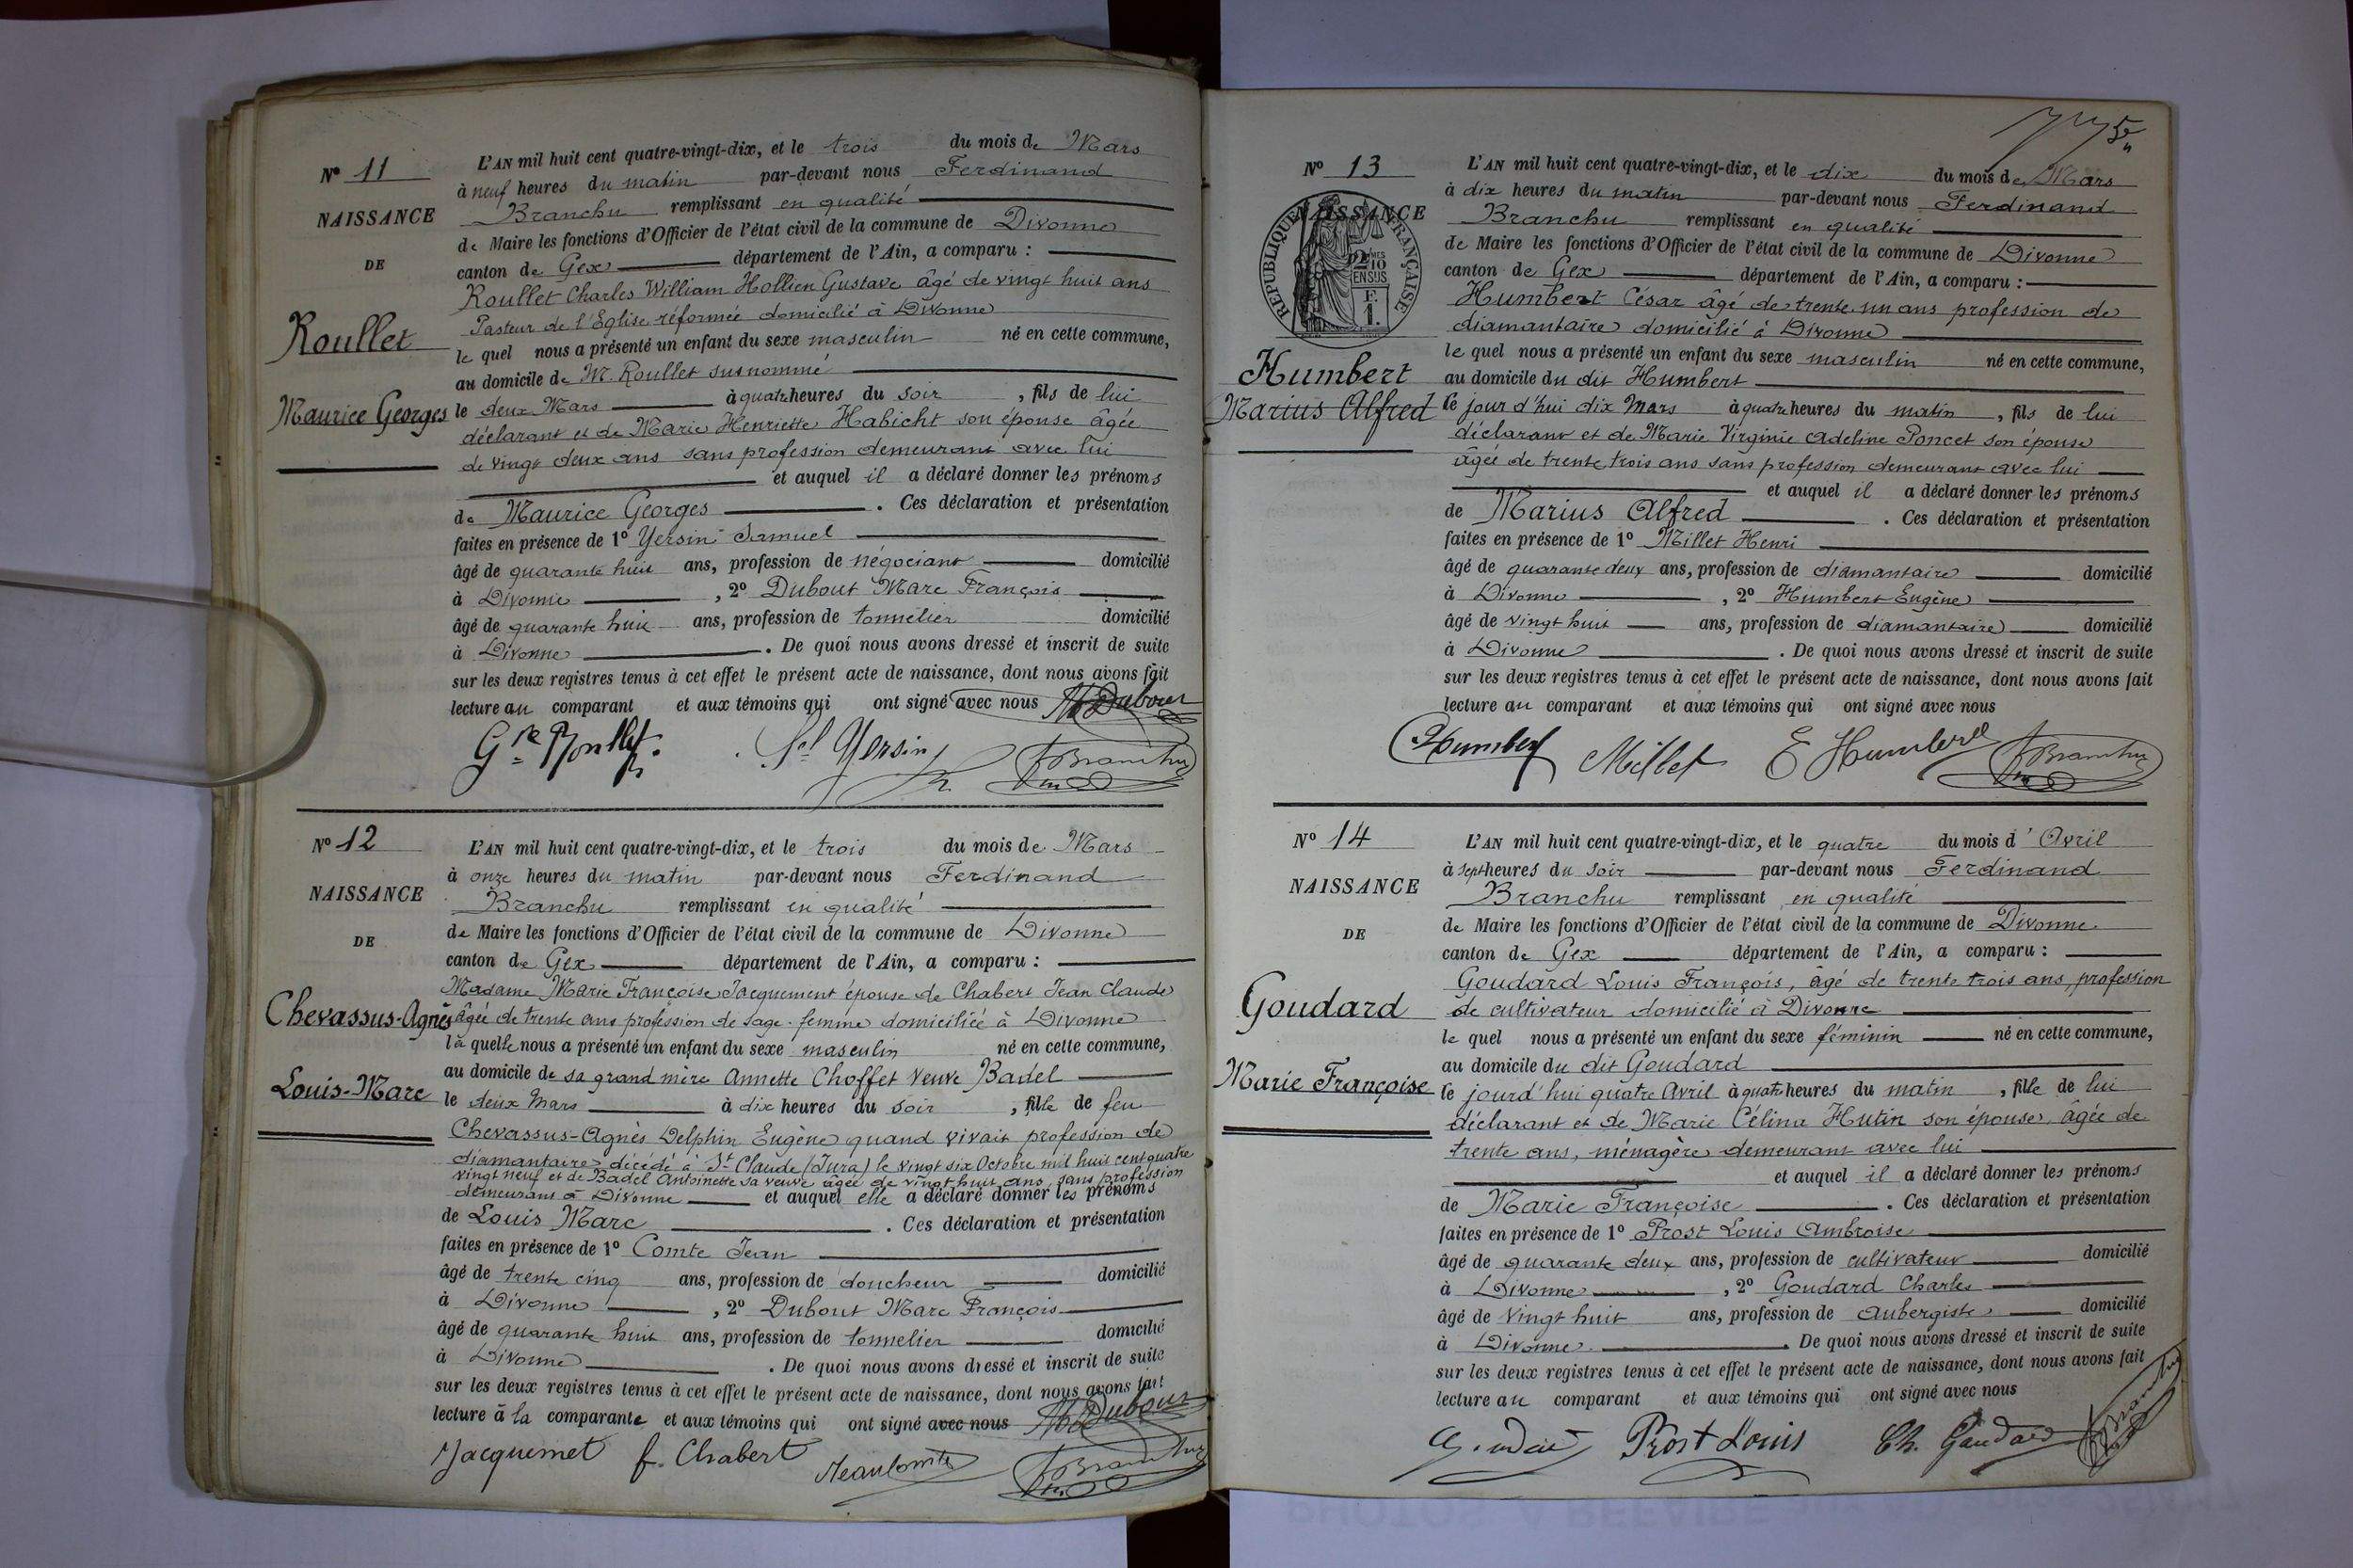 N° 11
NAISSANCE
DE
Roullet
Maurice Georges
L'AN mil huit cent quatre-vingt-dix, et le trois du mois de Mars
à neuf heures du matin par-devant nous Ferdinand
Branchu remplissant en qualité
de Maire les fonctions d'Officier de l'état civil de la commune de Divonne
canton de Gex département de l'Ain, a comparu :
Roullet Charles William Hollien Gustave âgé de vingt huit ans
Pasteur de l'Eglise réformée domicilié à Divonne
le quel nous a présenté un enfant du sexe masculin né en cette commune,
au domicile de M. Roullet susnommé
le deux Mars à quatre heures du soir , fils de lui
déclarant et de Marie Henriette Habicht son épouse âgée
de vingt deux ans sans profession demeurant avec lui
et auquel il a déclaré donner les prénoms
de Maurice Georges . Ces déclaration et présentation
faites en présence de 1° Yersin Samuel
âgé de quarante huit ans, profession de négociant domicilié
à Divonne , 2° Dubout Marc François
âgé de quarante huit ans, profession de tonnelier domicilié
à Divonne . De quoi nous avons dressé et inscrit de suite
sur les deux registres tenus à cet effet le présent acte de naissance, dont nous avons fait
lecture au comparant et aux témoins qui ont signé avec nous Dubout
Gve Roullet. Sel Yersin Branchu
N° 12
NAISSANCE
DE
Chevassus-Agnès
Louis-Marc
L'AN mil huit cent quatre-vingt-dix, et le trois du mois de Mars
à onze heures du matin par-devant nous Ferdinand
Branchu remplissant en qualité
de Maire les fonctions d'Officier de l'état civil de la commune de Divonne
canton de Gex département de l'Ain, a comparu :
Madame Marie Françoise Jacquement épouse de Chabert Jean Claude
âgée de trente ans profession de sage-femme domiciliée à Divonne
la quelle nous a présenté un enfant du sexe masculin né en cette commune,
au domicile de sa grand mère Annette Choffet veuve Badel
le deux Mars à dix heures du soir , fils de feu
Chevassus-Agnès Delphin Eugène quand vivait profession de
diamantaire décédé à St Claude (Jura) le vingt six Octobre mil huit cent quatre
vingt neuf et de Badel Antoinette sa veuve âgée de vingt huit ans, sans profession
demeurant à Divonne et auquel elle a déclaré donner les prénoms
de Louis Marc . Ces déclaration et présentation
faites en présence de 1° Comte Jean
âgé de trente cinq ans, profession de doucheur domicilié
à Divonne , 2° Dubout Marc François
âgé de quarante huit ans, profession de tonnelier domicilié
à Divonne . De quoi nous avons dressé et inscrit de suite
sur les deux registres tenus à cet effet le présent acte de naissance, dont nous avons fait
lecture à la comparante et aux témoins qui ont signé avec nous Dubout
Jacquemet f. Chabert Jean Comte Branchu
N° 13
NAISSANCE
RÉPUBLIQUE FRANÇAISE
2/10
EN SUS
F.
1.
Humbert
Marius Alfred
L'AN mil huit cent quatre-vingt-dix, et le dix du mois de Mars
à dix heures du matin par-devant nous Ferdinand
Branchu remplissant en qualité
de Maire les fonctions d'Officier de l'état civil de la commune de Divonne
canton de Gex département de l'Ain, a comparu :
Humbert César âgé de trente un ans profession de
diamantaire domicilié à Divonne
le quel nous a présenté un enfant du sexe masculin né en cette commune,
au domicile du dit Humbert
le jour d'hui dix Mars à quatre heures du matin , fils de lui
déclarant et de Marie Virginie Adeline Poncet son épouse
âgée de trente trois ans sans profession demeurant avec lui
et auquel il a déclaré donner les prénoms
de Marius Alfred . Ces déclaration et présentation
faites en présence de 1° Millet Henri
âgé de quarante deux ans, profession de diamantaire domicilié
à Divonne , 2° Humbert Eugène
âgé de vingt huit ans, profession de diamantaire domicilié
à Divonne . De quoi nous avons dressé et inscrit de suite
sur les deux registres tenus à cet effet le présent acte de naissance, dont nous avons fait
lecture au comparant et aux témoins qui ont signé avec nous
Humbert Millet E Humbert Branchu
N° 14
NAISSANCE
DE
Goudard
Marie Françoise
L'AN mil huit cent quatre-vingt-dix, et le quatre du mois d'Avril
à sept heures du soir par-devant nous Ferdinand
Branchu remplissant en qualité
de Maire les fonctions d'Officier de l'état civil de la commune de Divonne
canton de Gex département de l'Ain, a comparu :
Goudard Louis François, âgé de trente trois ans, profession
de cultivateur domicilié à Divonne
le quel nous a présenté un enfant du sexe féminin né en cette commune,
au domicile du dit Goudard
le jourd'hui quatre Avril à quatre heures du matin , fille de lui
déclarant et de Marie Célina Hutin son épouse, âgée de
trente ans, ménagère demeurant avec lui
et auquel il a déclaré donner les prénoms
de Marie Françoise . Ces déclaration et présentation
faites en présence de 1° Prost Louis Ambroise
âgé de quarante deux ans, profession de cultivateur domicilié
à Divonne , 2° Goudard Charles
âgé de vingt huit ans, profession de aubergiste domicilié
à Divonne . De quoi nous avons dressé et inscrit de suite
sur les deux registres tenus à cet effet le présent acte de naissance, dont nous avons fait
lecture au comparant et aux témoins qui ont signé avec nous
Prost Louis Ch. Goudard Branchu